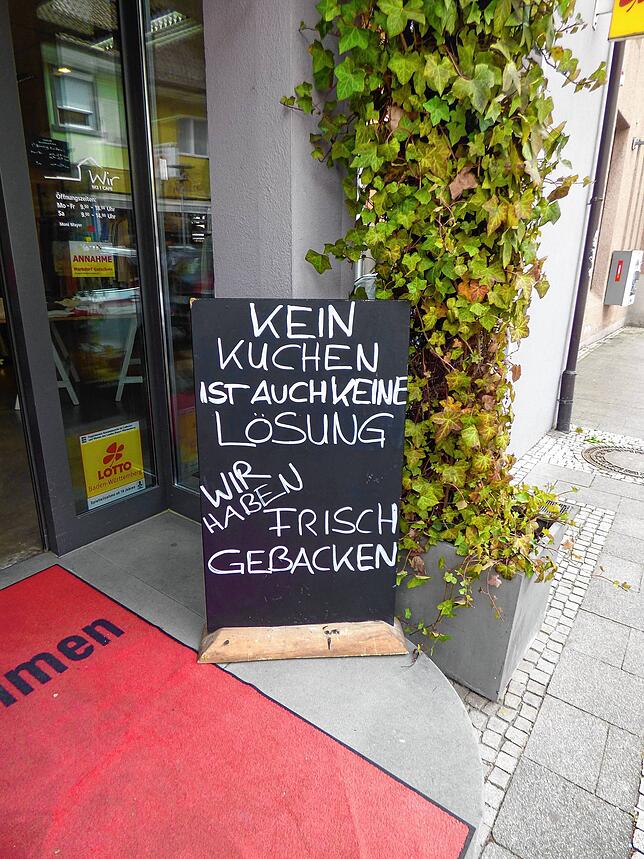 KEIN
KUCHEN
IST AUCH KEINE
LÖSUNG
WIR
HABEN
FRISCH
GEBACKEN
Wir
Öffnungszeiten:
Mo - Fr
Sa
ANNAHME
LOTTO
Baden-Württemberg
mmen